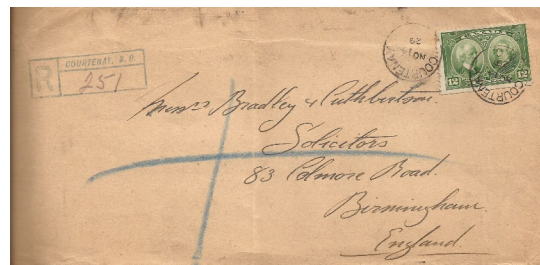 COURTENAY, B.C.
R 251
CANADA
12 12
COURTENAY
NO 14
29
COURTENAY
Messrs Bradley & Cuthbertson.
Solicitors
83 Colmore Road.
Birmingham.
England.